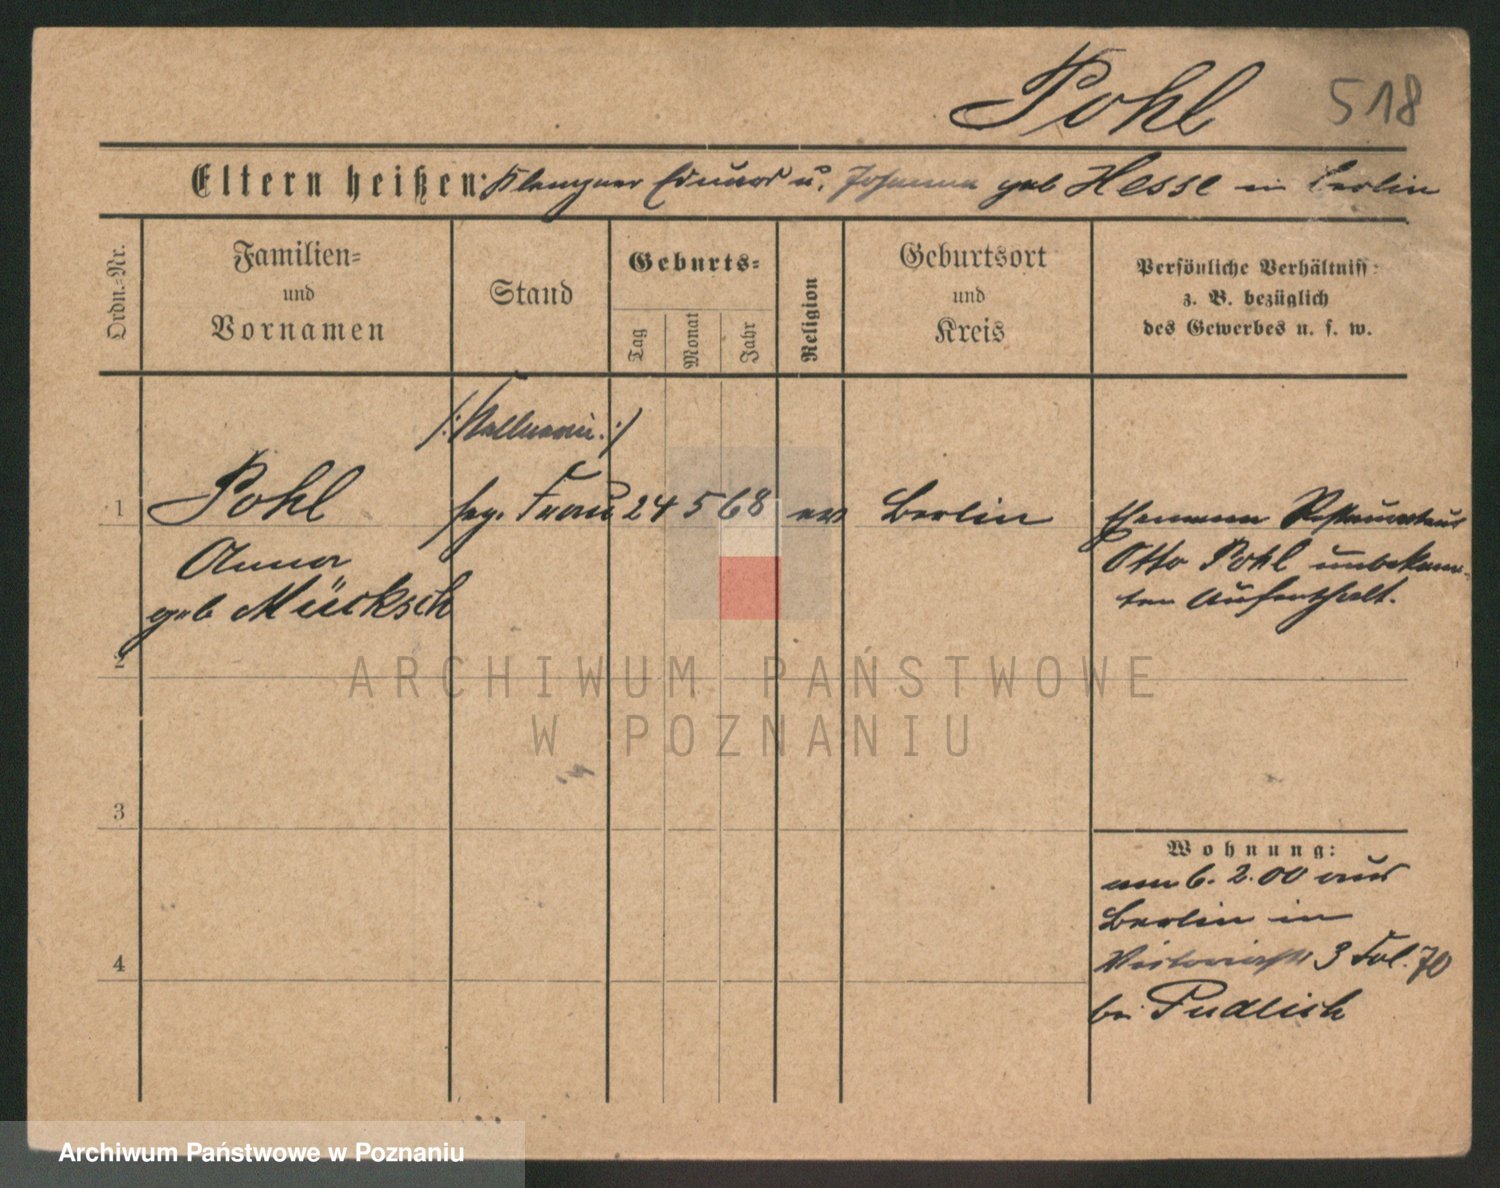 Pohl 518
Eltern heißen: Eduard u. Johanna geb Hesse in Berlin
Ordn.-Nr.
Familien=
und
Vornamen
Stand
Geburts=
Tag
Monat
Jahr
Religion
Geburtsort
und
Kreis
Persönliche Verhältniss
z. B. bezüglich
des Gewerbes u. s. w.
1
Pohl
Anna
geb Mücksch
Frau
24 5 68
ev
Berlin
Ehemann Restaurateur
Otto Pohl unbekann-
ten Aufenthalt.
2
3
4
Wohnung:
am 6. 2. 00 aus
Berlin in
Victoriastr 3 Fol. 70
bei Pudlich
ARCHIWUM PAŃSTWOWE
W POZNANIU
Archiwum Państwowe w Poznaniu